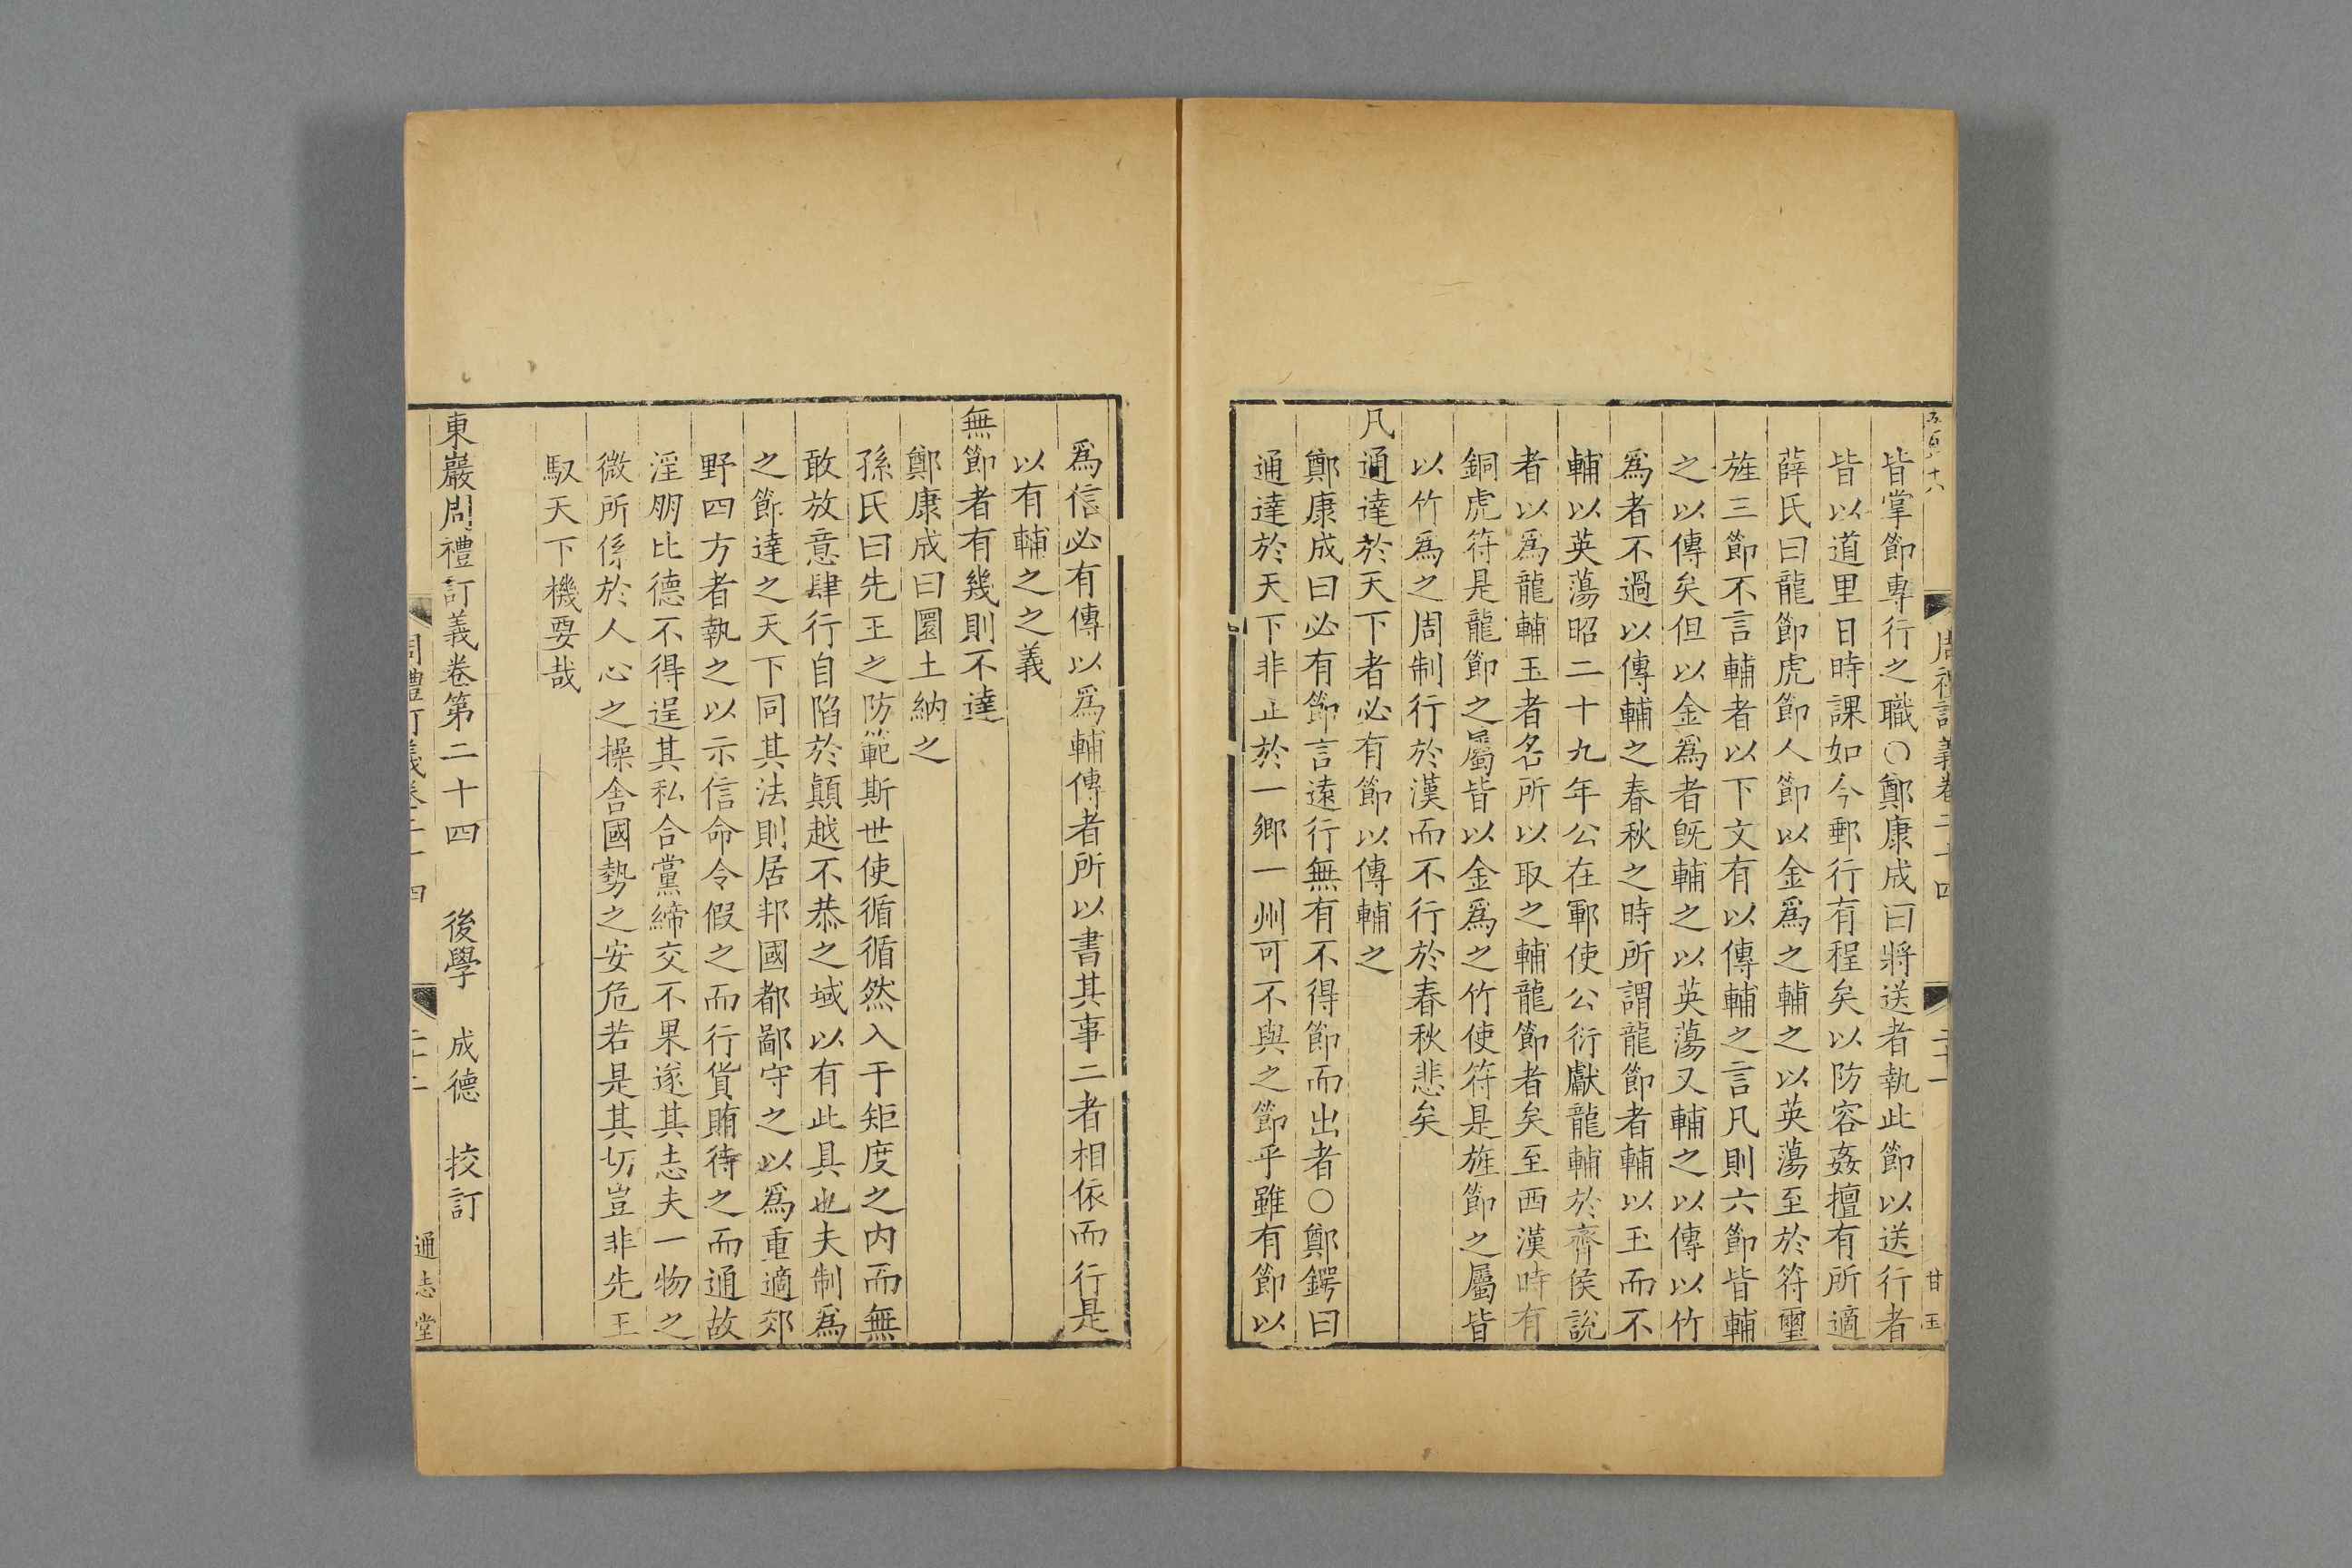 皆掌節專行之職○鄭康成曰將送者執此節以送行者
皆以道里日時課如今郵行有程矣以防容姦擅有所適
薛氏曰龍節虎節人節以金爲之輔之以英蕩至於符璽
旌三節不言輔者以下文有以傳輔之言凡則六節皆輔
之以傳矣但以金爲者旣輔之以英蕩又輔之以傳以竹
爲者不過以傳輔之春秋之時所謂龍節者輔以玉而不
輔以英蕩昭二十九年公在鄆使公衍獻龍輔於齊侯說
者以爲龍輔玉者名所以取之輔龍節者矣至西漢時有
銅虎符是龍節之屬皆以金爲之竹使符是旌節之屬皆
以竹爲之周制行於漢而不行於春秋悲矣
凡通達於天下者必有節以傳輔之
鄭康成曰必有節言遠行無有不得節而出者○鄭鍔曰
通達於天下非止於一鄉一州可不與之節乎雖有節以
爲信必有傳以爲輔傳者所以書其事二者相依而行是
以有輔之之義
無節者有幾則不達
鄭康成曰圜土納之
孫氏曰先王之防範斯世使循循然入于矩度之内而無
敢放意肆行自陷於顛越不恭之域以有此具也夫制爲
之節達之天下同其法則居邦國都鄙守之以爲重適郊
野四方者執之以示信命令假之而行貨賄待之而通故
淫朋比德不得逞其私合黨締交不果遂其志夫一物之
微所係於人心之操舍國勢之安危若是其切豈非先王
馭天下機要哉
東巖周禮訂義卷第二十四 後學 成德 挍訂
通志堂